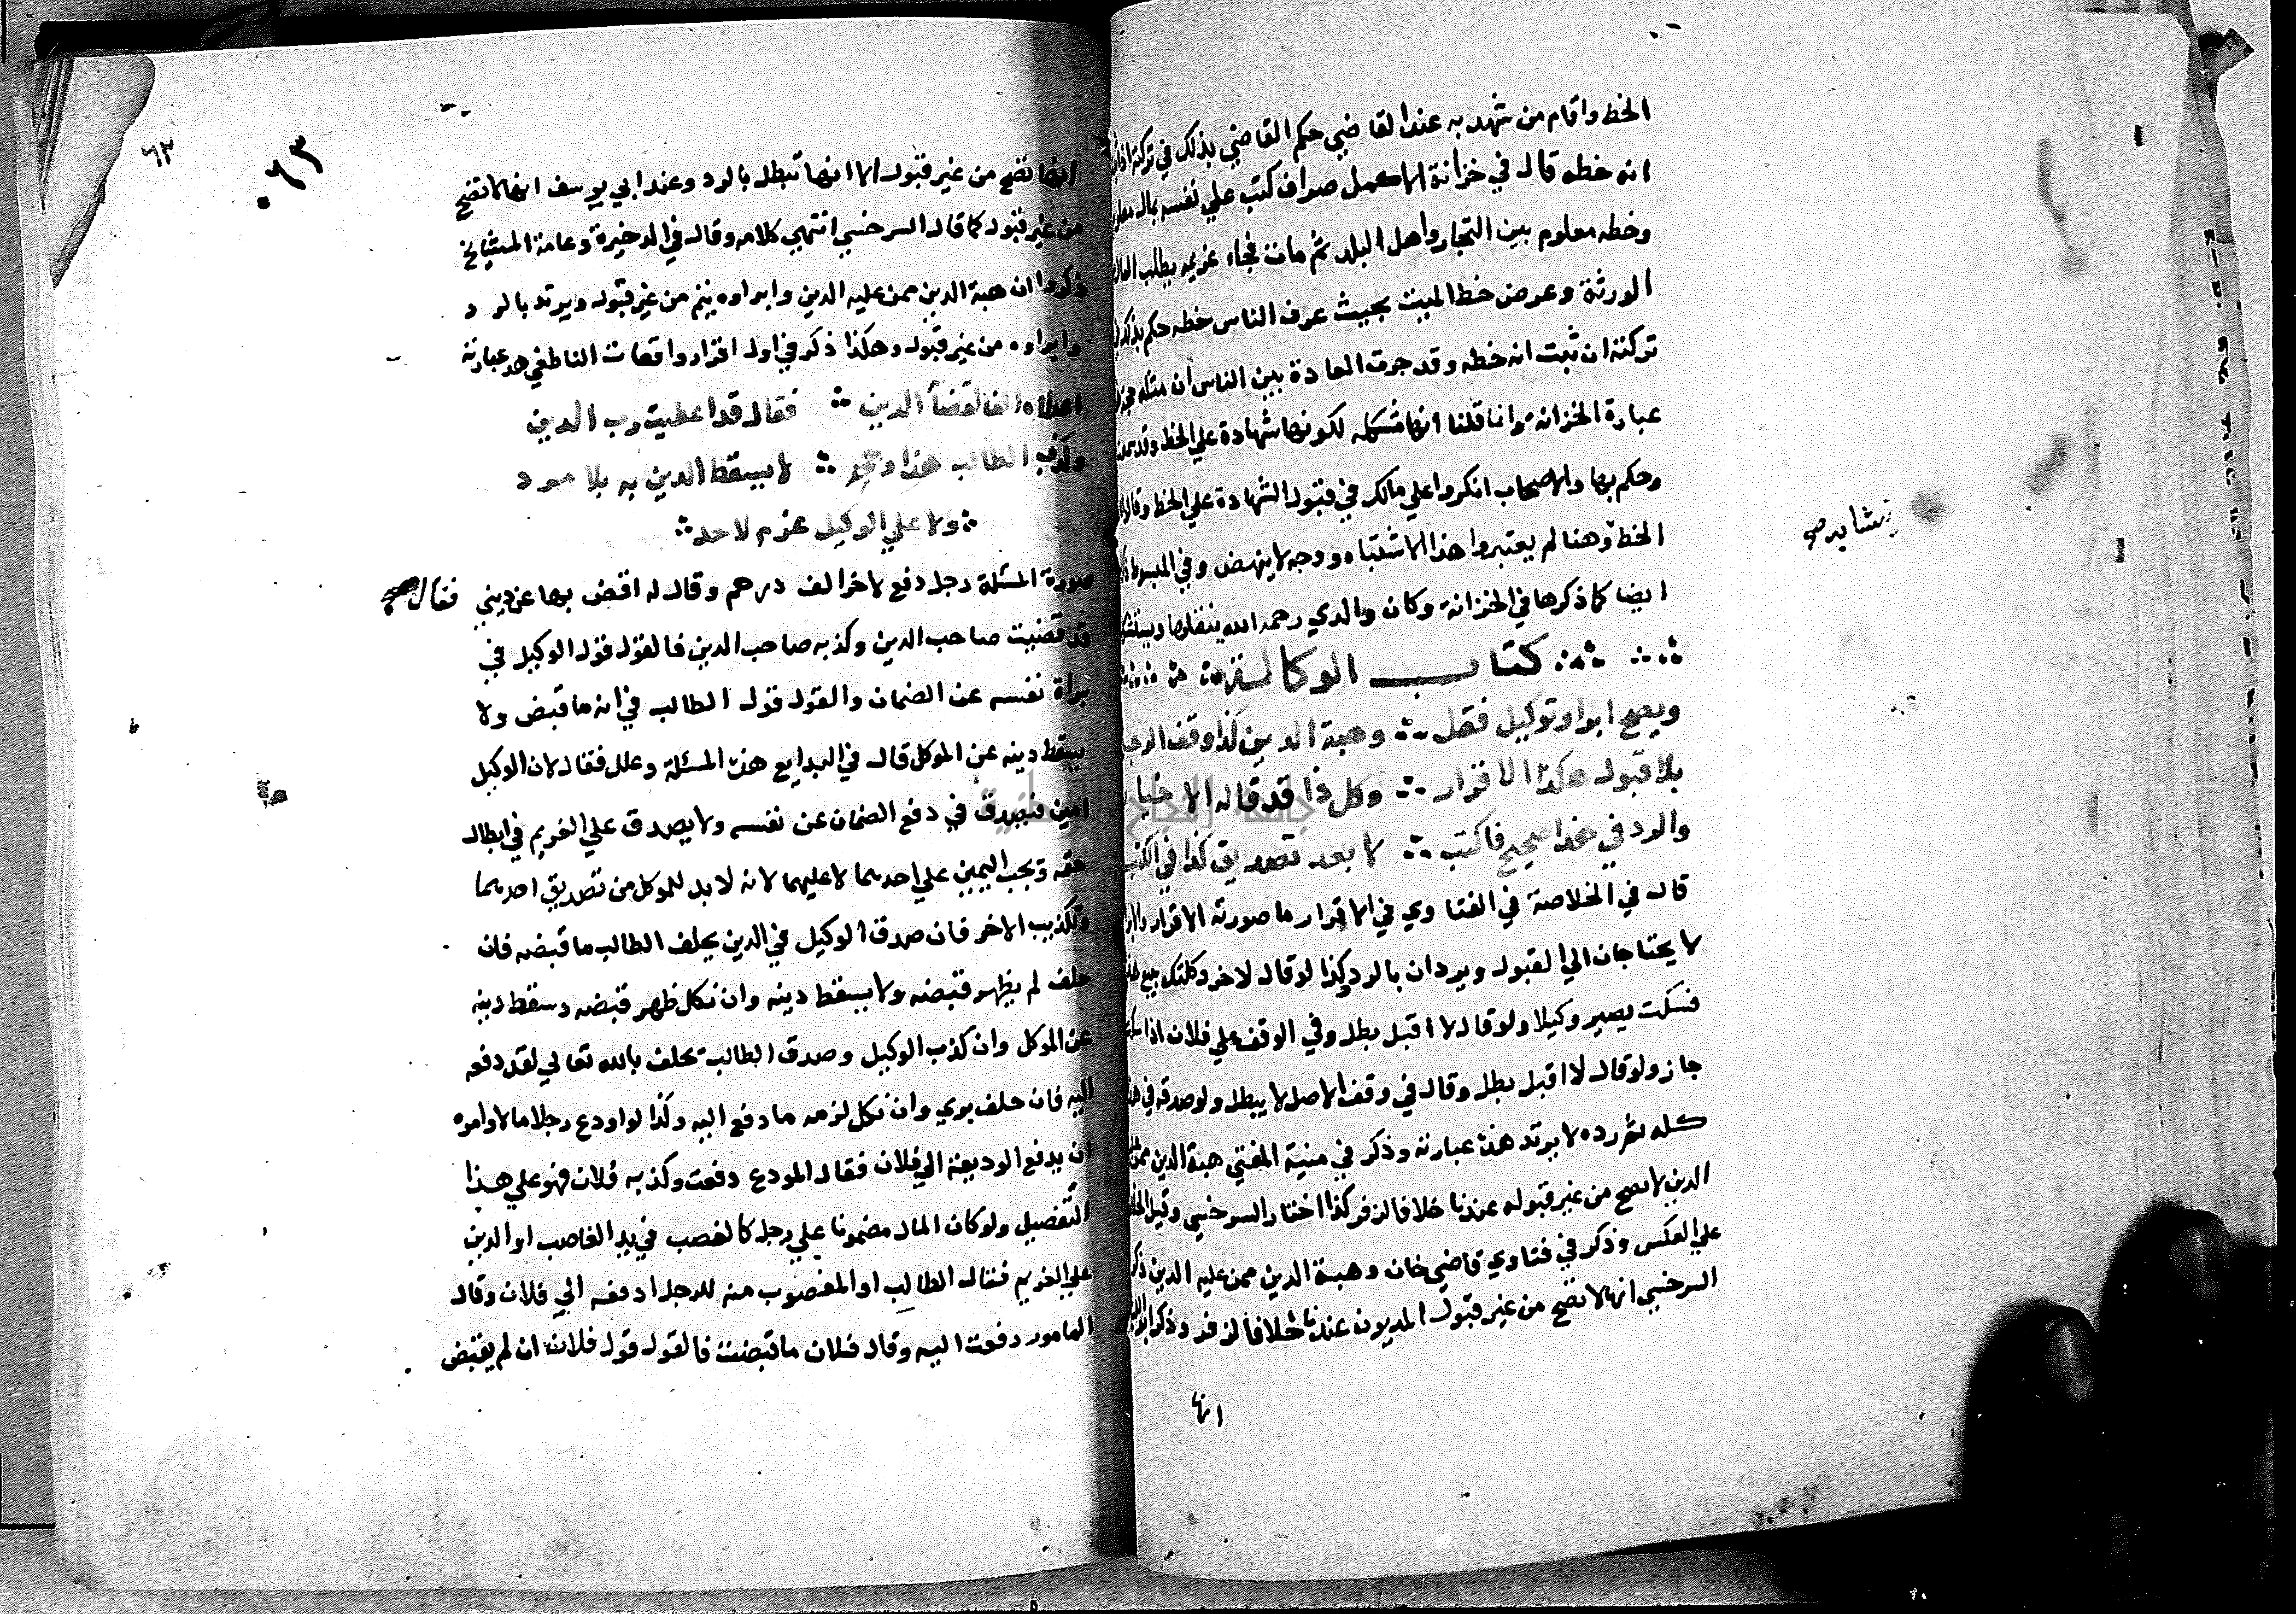 الخط واقام من شهد به عند القاضي حكم القاضي بذلك في تركة
انه خطه قال في خزانة الاكمل صراف كتب علي نفسه بمال
وخطه معلوم بين التجار واهل البلد ثم مات فجاء غريم يطلب المال
الورثة وعرض خط الميت بحيث عرف الناس خطه حكم بذلك
تركته ان ثبت انه خطه وقد جرت العادة بين الناس ان مثله حجة
عبارة الخزانة وانما قلنا انها مشكله لكونها شهادة علي الخط وقد
وحكم بها والاصحاب انكروا علي مالك في قبول الشهادة علي الخط وقالوا
الخط وهنا لم يعتبروا هذا الاشتباه ووجه لا ينهض وفي المبسوط
ايضا كما ذكرها في الخزانة وكان والدي رحمه الله ينقلها
كتاب الوكالة
ويصح ابرا وتوكيل فقل وهبة الدين كذا وقف
بلا قبول هكذا الاقرار وكل ذا قد قاله الاخيار
والرد في هذا صحيح فاكتب لا بعد تصديق كذا في الكتب
قال في الخلاصة في الفتاوي في الاقرار ما صورته الاقرار
لا يحتاجان الي القبول ويردان بالرد وكذا لو قال لاخر وكلتك ببيع
فسكت يصير وكيلا ولو قال لا اقبل بطل وفي الوقف علي فلان اذا
جاز ولو قال لا اقبل بطل وقال في وقف الاصل لا يبطل ولو صدقه في
كله ثم رده لا يرتد هذه عبارته وذكر في منية المفتي هبة الدين
الدين لا تصح من غير قبوله عندنا خلافا لزفر كذا اختار السرخسي وقيل
علي العكس وذكر في فتاوي قاضي خان وهبة الدين ممن عليه الدين ذكر
السرخسي انها لا تصح من غير قبول المديون عندنا خلافا لزفر وذكر
انها
٦٣
انها تصح من غير قبول الا انها تبطل بالرد وعند ابي يوسف انها لا تصح
من غير قبول كما قال السرخسي انتهي كلامه وقال في الذخيرة وعامة المشايخ
ذكروا ان هبة الدين ممن عليه الدين وابراوه يتم من غير قبول ويرتد بالرد
وابراوه من غير قبول وهكذا ذكر في اول اقرار واقعات الناطفي هذه عبارته
اعطاه الفا لقضا الدين فقال قد اعطيت رب الدين
وكذب الطالب هذا لا يسقط الدين به بلا
ولا علي الوكيل غرم لاحد
صورة المسئلة رجل دفع لاخر الف درهم وقال له اقض بها عن ديني فقال
قد قضيت صاحب الدين وكذبه صاحب الدين فالقول قول الوكيل في
براة نفسه عن الضمان والقول قول الطالب في انه ما قبض ولا
يسقط دينه عن الموكل قال في البدايع هذه المسئلة وعلل فقال لان الوكيل
امين فيصدق في دفع الضمان عن نفسه ولا يصدق علي الغريم في ابطال
حقه وتجب اليمين علي احدهما لا عليهما لانه لا بد للموكل من تصديق احدهما
وتكذيب الاخر فان صدق الوكيل في الدين يحلف الطالب ما قبضه فان
حلف لم يظهر قبضه ولا يسقط دينه وان نكل ظهر قبضه وسقط دينه
عن الموكل وان كذب الوكيل وصدق الطالب يحلف بالله تعالي لقد دفعه
اليه فان حلف بري وان نكل لزمه ما دفع اليه وكذا لو اودع رجلا مالا وامره
ان يدفع الوديعة الي فلان فقال المودع دفعت وكذبه فلان فهو علي هذا
التفصيل ولو كان المال مضمونا علي رجل كالغصب في يد الغاصب او الدين
علي الغريم فقال الطالب او المغصوب منه للرجل ادفعه الي فلان وقال
المامور دفعت اليه وقال فلان ما قبضت فالقول قول فلان انه لم يقبض